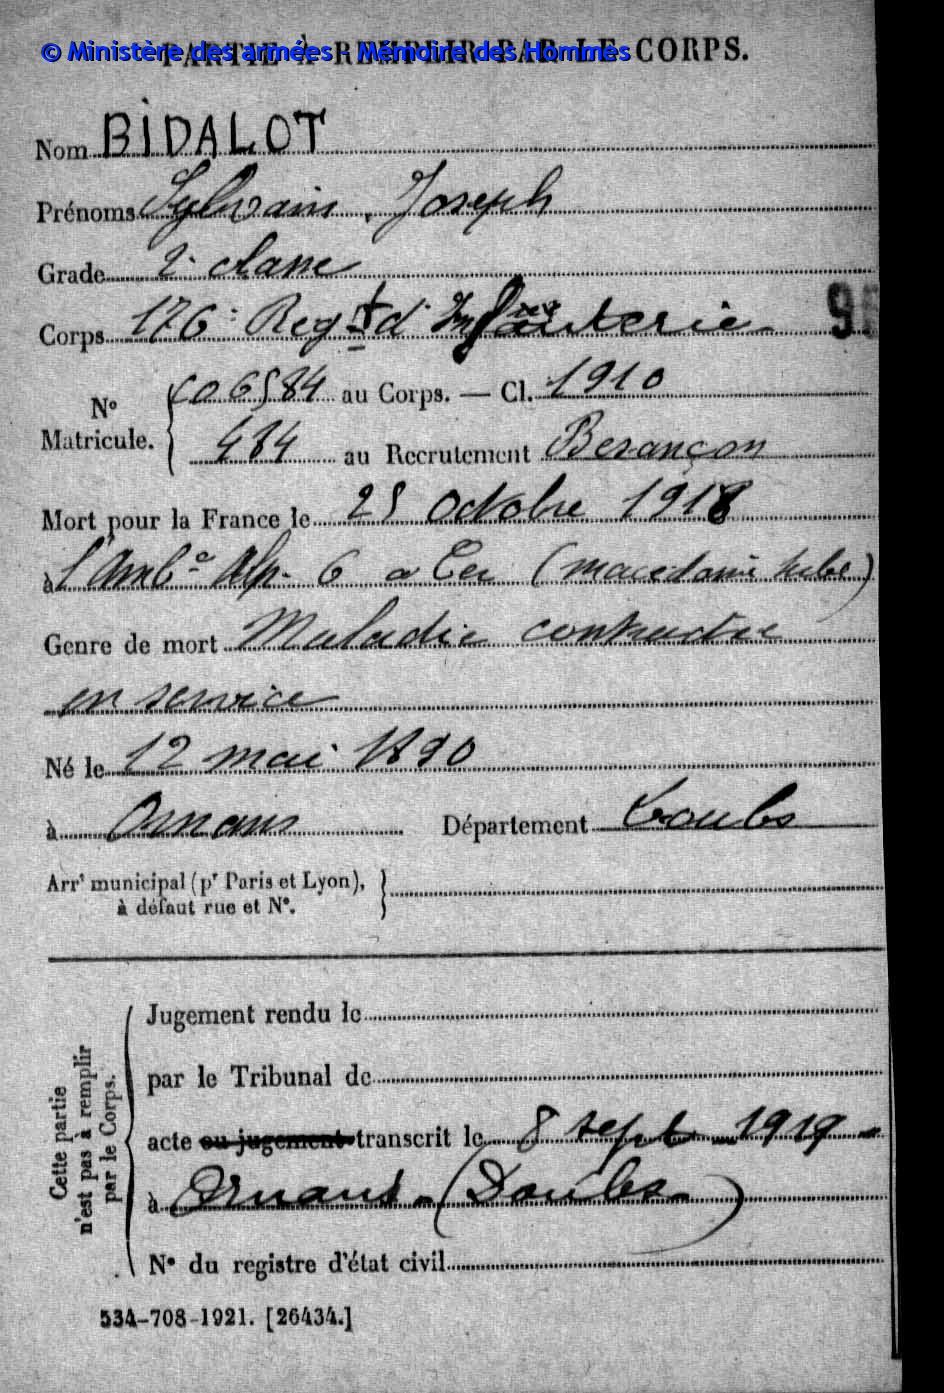 © Ministère des armées - Mémoire des Hommes
PARTIE À REMPLIR PAR LE CORPS.
Nom BIDALOT
Prénoms Sylvain, Joseph
Grade 2e classe
Corps 176e Regt d'Infanterie
N° Matricule. 6584 au Corps. — Cl. 1910
484 au Recrutement Besançon
Mort pour la France le 25 octobre 1918
à l'Ambce Alp. 6 a (Macedoine serbe)
Genre de mort Maladie contractée
en service
Né le 12 mai 1890
à Ornans Département Doubs
Arrt municipal (pr Paris et Lyon),
à défaut rue et N°.
Cette partie
n'est pas à remplir
par le Corps.
Jugement rendu le
par le Tribunal de
acte ou jugement transcrit le 8 sept - 1919 -
à Ornans - (Doubs -)
N° du registre d'état civil
534-708-1921. [26434.]